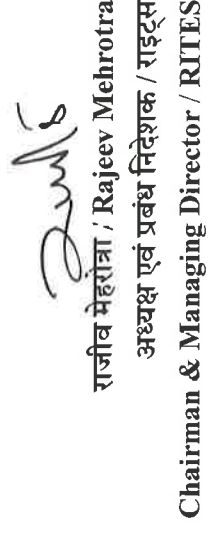 राजीव मेहरोत्रा / Rajeev Mehrotra
अध्यक्ष एवं प्रबंध निदेशक / राइट्स
Chairman & Managing Director / RITES